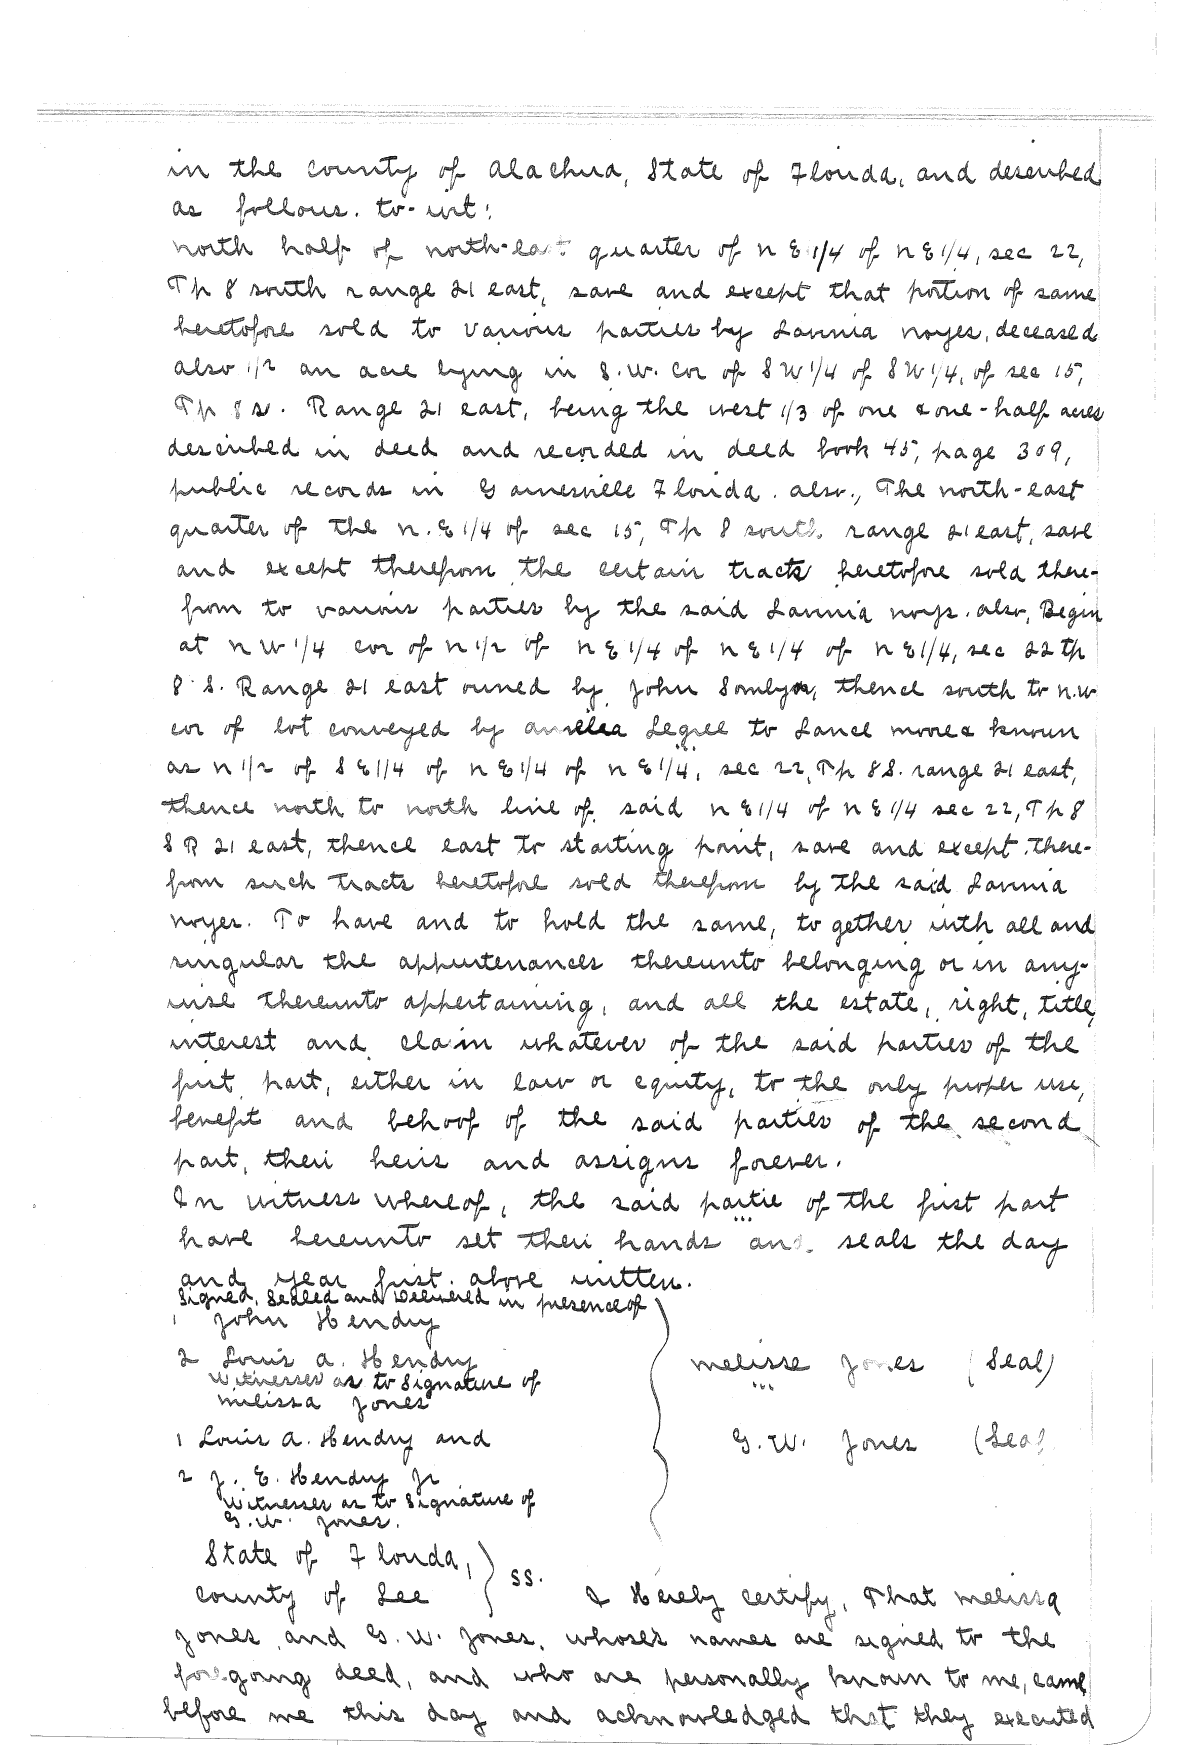 in the county of Alachua, State of Florida, and described
as follows. to-wit:
north half of north-east quarter of n E 1/4 of n E 1/4, sec 22,
Tp 8 south range 21 east, save and except that portion of same
heretofore sold to various parties by Lavinia noyes, deceased
also 1/2 an acre lying in S.W. cor of S W 1/4 of S W 1/4, of sec 15,
Tp 8 s. Range 21 east, being the west 1/3 of one & one-half acres
described in deed and recorded in deed book 45, page 309,
public records in Gainesville Florida. also, The north-east
quarter of the n. E 1/4 of sec 15, Tp 8 south range 21 east, save
and except therefrom the certain tracts heretofore sold there-
from to various parties by the said Lavinia noys. also, Begin
at n W 1/4 cor of n 1/2 of n E 1/4 of n E 1/4 of n E 1/4, sec 22 tp
8 S. Range 21 east owned by John thence south to n.w
cor of lot conveyed by amelea Legree to Lancl moore & known
as n 1/2 of S E 1/4 of n E 1/4 of n E 1/4, sec 22, Tp 8 S. range 21 east,
thence north to north line of said n E 1/4 of n E 1/4 sec 22, Tp 8
S R 21 east, thence east to starting point, save and except there-
from such tracts heretofore sold therefrom by the said Lavinia
noyes. To have and to hold the same, to gether with all and
singular the appurtenances thereunto belonging or in any-
wise thereunto appertaining, and all the estate, right, title,
interest and claim whatever of the said parties of the
first part, either in law or equity, to the only proper use,
benefit and behoof of the said parties of the second
part, their heirs and assigns forever.
In witness whereof, the said partie of the first part
have hereunto set their hands and seals the day
and year first above written.
Signed, Sealed and Delivered in presence of
1 John Hendry
2 Louis A. Hendry
Witnesses as to Signature of
Melissa Jones
melisse Jones (Seal)
1 Louis A. Hendry and
G. W. Jones (Seal
2 J. E. Hendry Jr
Witnesses as to Signature of
G. W. Jones.
State of Florida,
County of Lee } ss. I Hereby certify, That melissa
Jones and G. W. Jones, whoses names are signed to the
foregoing deed, and who are personally known to me, came
before me this day and acknowledged that they executed